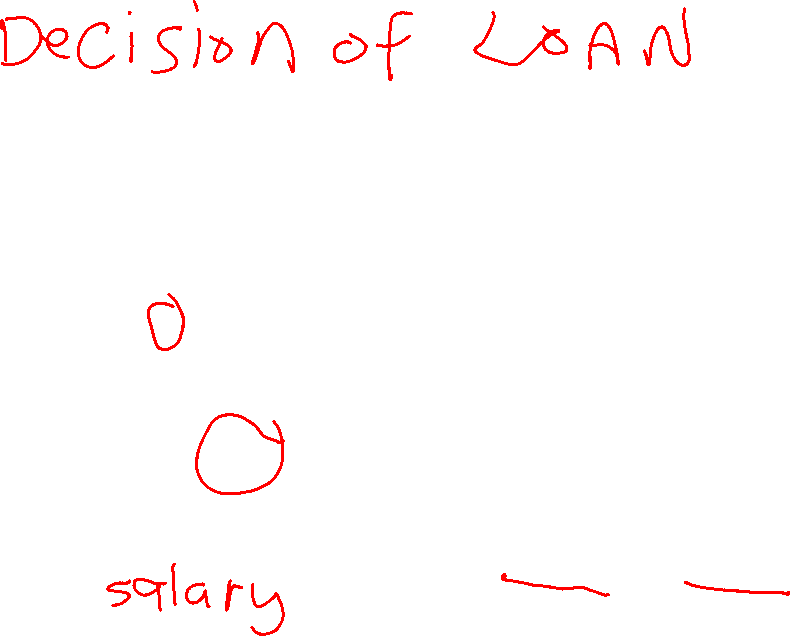 Decision of LOAN
salary